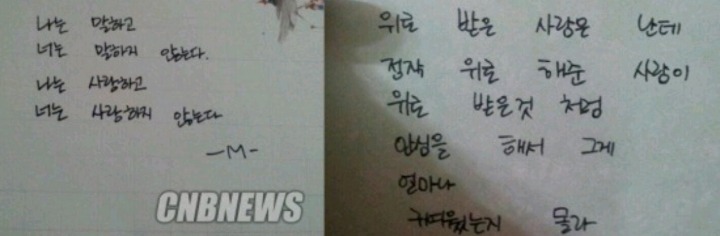 나는 말하고
너는 말하지 않는다.
나는 사랑하고
너는 사랑하지 않는다
-M-
CNBNEWS
위로 받은 사람은 난데
정작 위로 해준 사람이
위로 받은것 처럼
안심을 해서 그게
얼마나
귀여웠는지 몰라